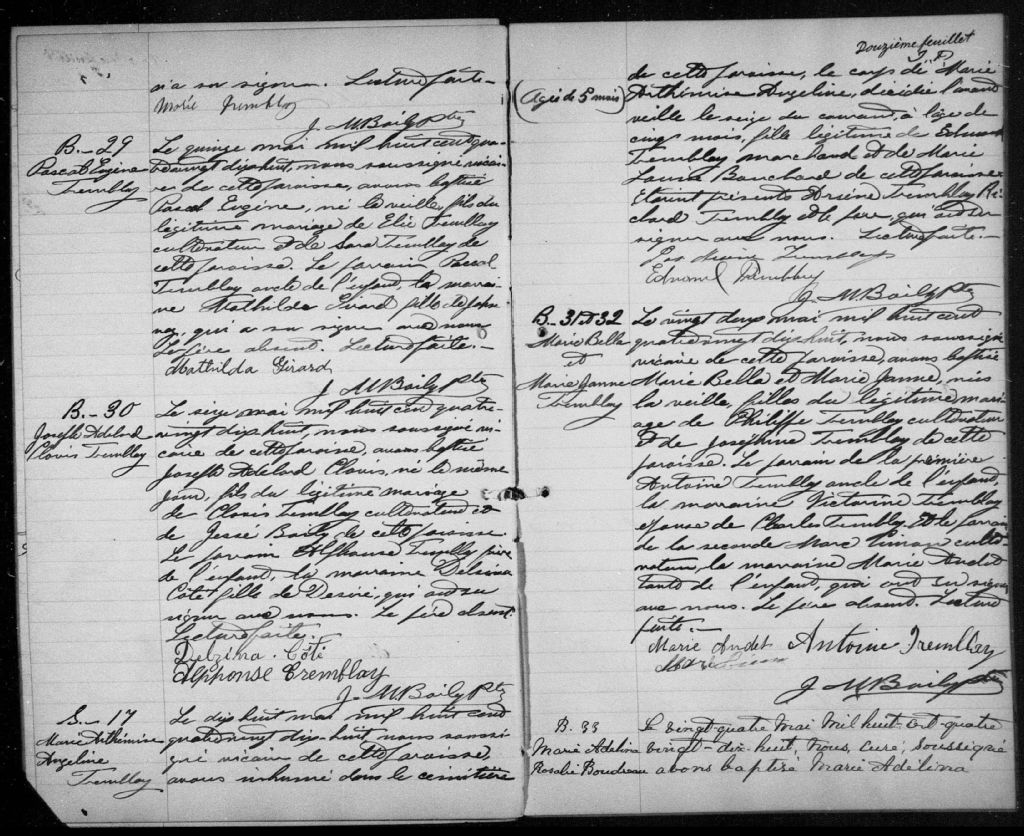 n'a su signer. Lecture faite.-
Marie Tremblay
J. M. Baily Ptre
B.-29
Pascal Eugène
Tremblay
Le quinze mai mil huit cent qua-
trevingt dixhuit, nous soussigné vicai-
re de cette paroisse, avons baptisé
Pascal Eugène, né la veille, fils du
légitime mariage de Elie Tremblay
cultivateur et de Sara Tremblay de
cette paroisse. Le parrain Pascal
Tremblay oncle de l'enfant, la marrai-
ne Mathilda Girard fille de
qui a su signer avec nous
Le père absent. Lecture faite.-
Mathilda Girard
J. M. Baily Ptre
B.-30
Joseph Adelard
Clovis Tremblay
Le seize mai mil huit cent quatre-
vingt dixhuit, nous soussigné vi-
caire de cette paroisse, avons baptisé
Joseph Adelard Clovis, né le même
jour, fils du légitime mariage
de Clovis Tremblay cultivateur et
de Jessé Baily de cette paroisse.
Le parrain Alphonse Tremblay frère
de l'enfant, la marraine Delzima
Côté fille de Desiré, qui ont su
signer avec nous. Le père absent.
Lecture faite.
Delzima Côté
Alphonse Tremblay
J. M. Baily Ptre
S.-17
Marie Arthémise
Angeline
Tremblay
Le dixhuit mai mil huit cent
quatrevingt dix-huit nous soussi-
gné vicaire de cette paroisse,
avons inhumé dans le cimitière
Douzième feuillet
(Agée de 5 mois)
de cette paroisse, le corps de Marie
Arthémise Angeline, décédée l'avant
veille le seize du courant, à l'âge de
cinq mois, fille légitime de Edmond
Tremblay marchand et de Marie
Louise Bouchard de cette paroisse.
Etaient présents Tremblay Ri-
chard Tremblay et le père, qui ont su
signer avec nous. Lecture faite.-
Edmond Tremblay
J. M. Baily Ptre
B.-31 et 32
Marie Bella
et
Marie Jeanne
Tremblay
Le vingt deux mai mil huit cent
quatrevingt dixhuit, nous soussigné
vicaire de cette paroisse, avons baptisé
Marie Bella et Marie Jeanne, nées
la veille, filles du légitime mari-
age de Philippe Tremblay cultivateur
et de Joséphine Tremblay de cette
paroisse. Le parrain de la première
Antoine Tremblay oncle de l'enfant,
la marraine Victorine Tremblay
épouse de Charles Tremblay. Et le parrain
de la seconde Marc Simon culti-
vateur, la marraine Marie Audet
tante de l'enfant, qui ont su signer
avec nous. Le père absent. Lecture
faite.-
Marie Audet Antoine Tremblay
J. M. Baily Ptre
B. 33
Marie Adelina
Rosalie Boudreau
Le vingt-quatre Mai Mil huit-cent-quatre
vingt-dix-huit, nous, curé, soussigné
avons baptisé Marie Adélina